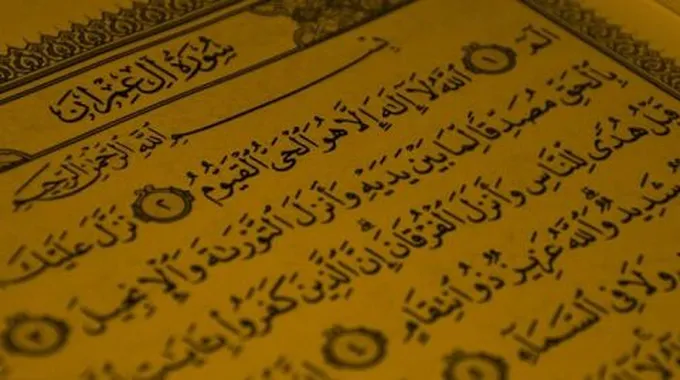 سُورَةُ آلِ عِمْرَانَ
بِسْمِ اللَّهِ الرَّحْمَٰنِ الرَّحِيمِ
الٓمٓ ١ ٱللَّهُ لَآ إِلَٰهَ إِلَّا هُوَ ٱلْحَىُّ ٱلْقَيُّومُ ٢ نَزَّلَ عَلَيْكَ
بِٱلْحَقِّ مُصَدِّقًا لِّمَا بَيْنَ يَدَيْهِ وَأَنزَلَ ٱلتَّوْرَىٰةَ وَٱلْإِنجِيلَ ٣
قَبْلُ هُدًى لِّلنَّاسِ وَأَنزَلَ ٱلْفُرْقَانَ ۗ إِنَّ ٱلَّذِينَ كَفَرُوا۟ بِـَٔايَـٰتِ
شَدِيدٌ ۗ وَٱللَّهُ عَزِيزٌ ذُو ٱنتِقَامٍ ٤
وَلَا فِى ٱلسَّمَآءِ ٥